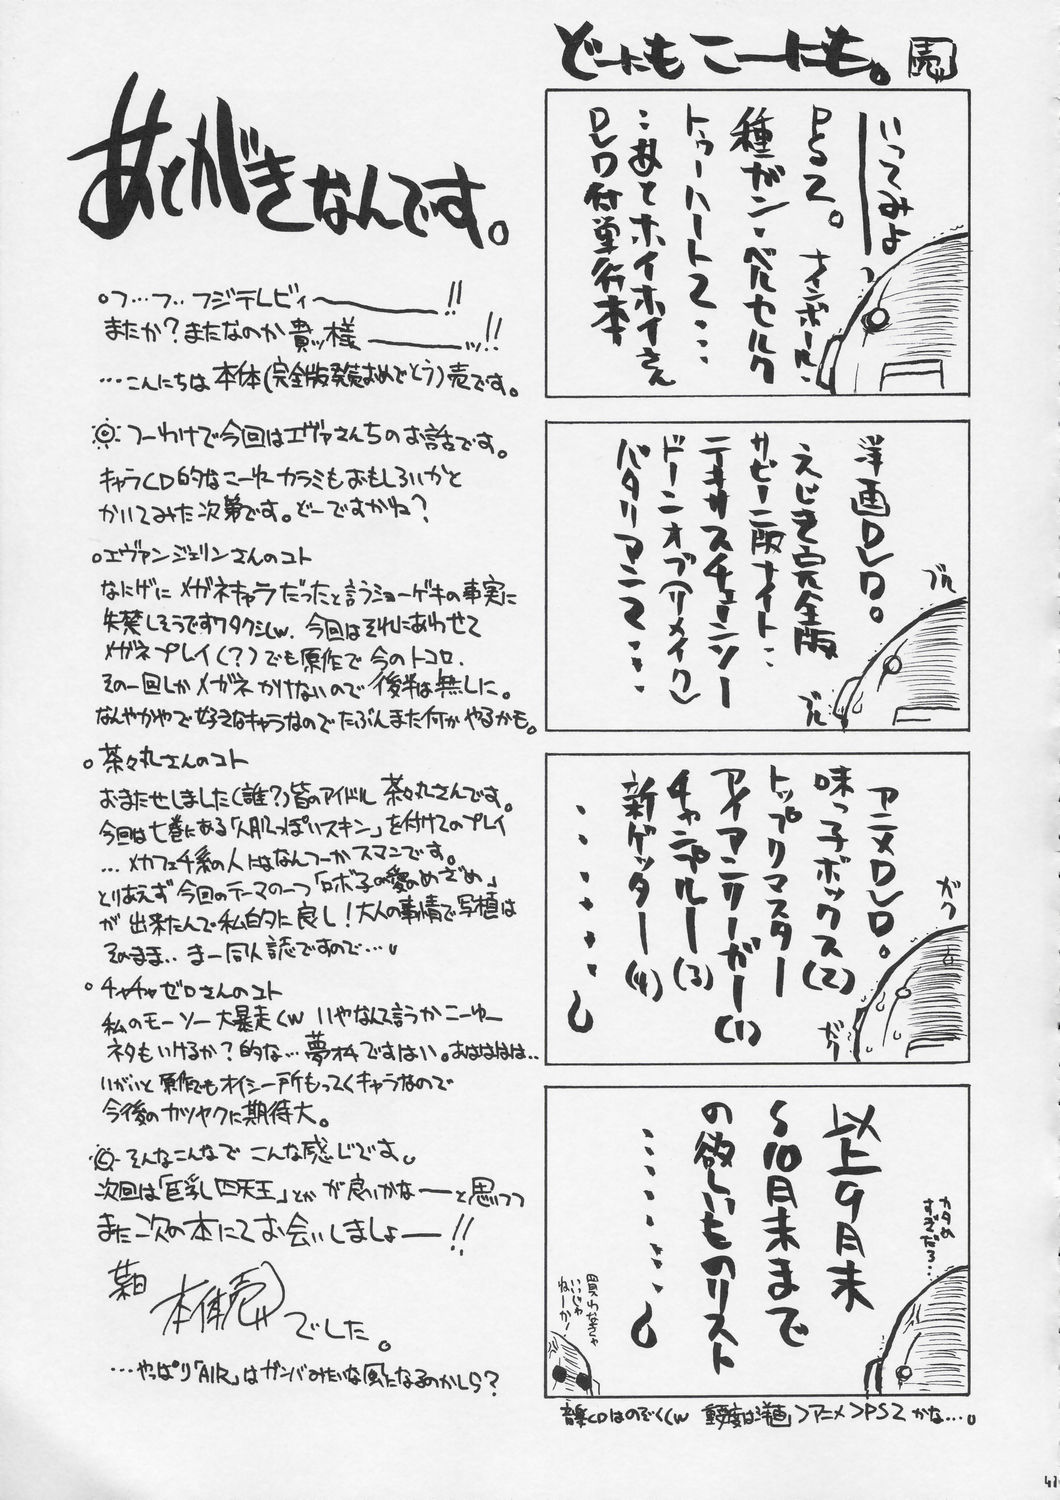 あとがきなんです。
○フ…フ‥フジテレビィ〜――――!!
またか？またなのか貴ッ様――――ッ!!
…こんにちは本体(完全版発売おめでとう)売です。
つーわけで今回はエヴァさんちのお話です。
キャラCD的なこーゆーカラミもおもしろいかと
かいてみた次第です。どーですかね？
○エヴァンジェリンさんのコト
なにげにメガネキャラだったと言うショーゲキの事実に
失禁しそうですワタクシ(w. 今回はそれにあわせて
メガネプレイ(？)でも原作で今のトコロ、
その一回しかメガネかけないので後半は無しに。
なんやかやで好きなキャラなのでたぶんまた何かやるかも。
○茶々丸さんのコト
おまたせしました(誰？)皆のアイドル茶々丸さんです。
今回は七巻にある「人肌っぽいスキン」を付けてのプレイ
…メカフェチ系の人にはなんつーかスマンです。
とりあえず今回のテーマの一つ「ロボ子の愛のめざめ」
が出来たんで私的に良し！大人の事情で写植は
そのまま‥まー同人誌ですので…。
○チャチャゼロさんのコト
私のモーソー大暴走(w いやなんて言うかこーゆー
ネタもいけるか？的な…夢オチですはい。あはははは‥
いがいと原作でもオイシー所もってくキャラなので
今後のカツヤクに期待大。
そんなこんなでこんな感じです。
次回は「巨乳四天王」とかが良いかなーと思いつつ
また次の本にてお会いしましょー――!!
本体売でした。
…やっぱり「AIR」はガンバみたいな風になるのかしら？
どーにもこーにも。 売
いってみよ――
PS2。ナインボール・
種ガン・ベルセルク
トゥーハート2‥‥
‥あとホイホイさん
DVD付単行本
洋画DVD。
えじき完全版
サビーニ版ナイト‥
テキサスチェーンソー
ドーンオブ(リメイク)
バタリアン2‥‥
ブル
ブル
アニメDVD。
味っ子ボックス(2)
トップリマスター
アイアンリーガー(1)
チャンプルー(3)
新ゲッター(4)
・・・・・。
ガク
ガク
以上9月末
〜10月末まで
の欲しいものリスト
・・・・・。
カタめ
すぎだろ…
買わなきゃ
いいじゃ
ねーか〜
音楽CDはのぞく(w 重要度は洋画>アニメ>PS2かな…。
41